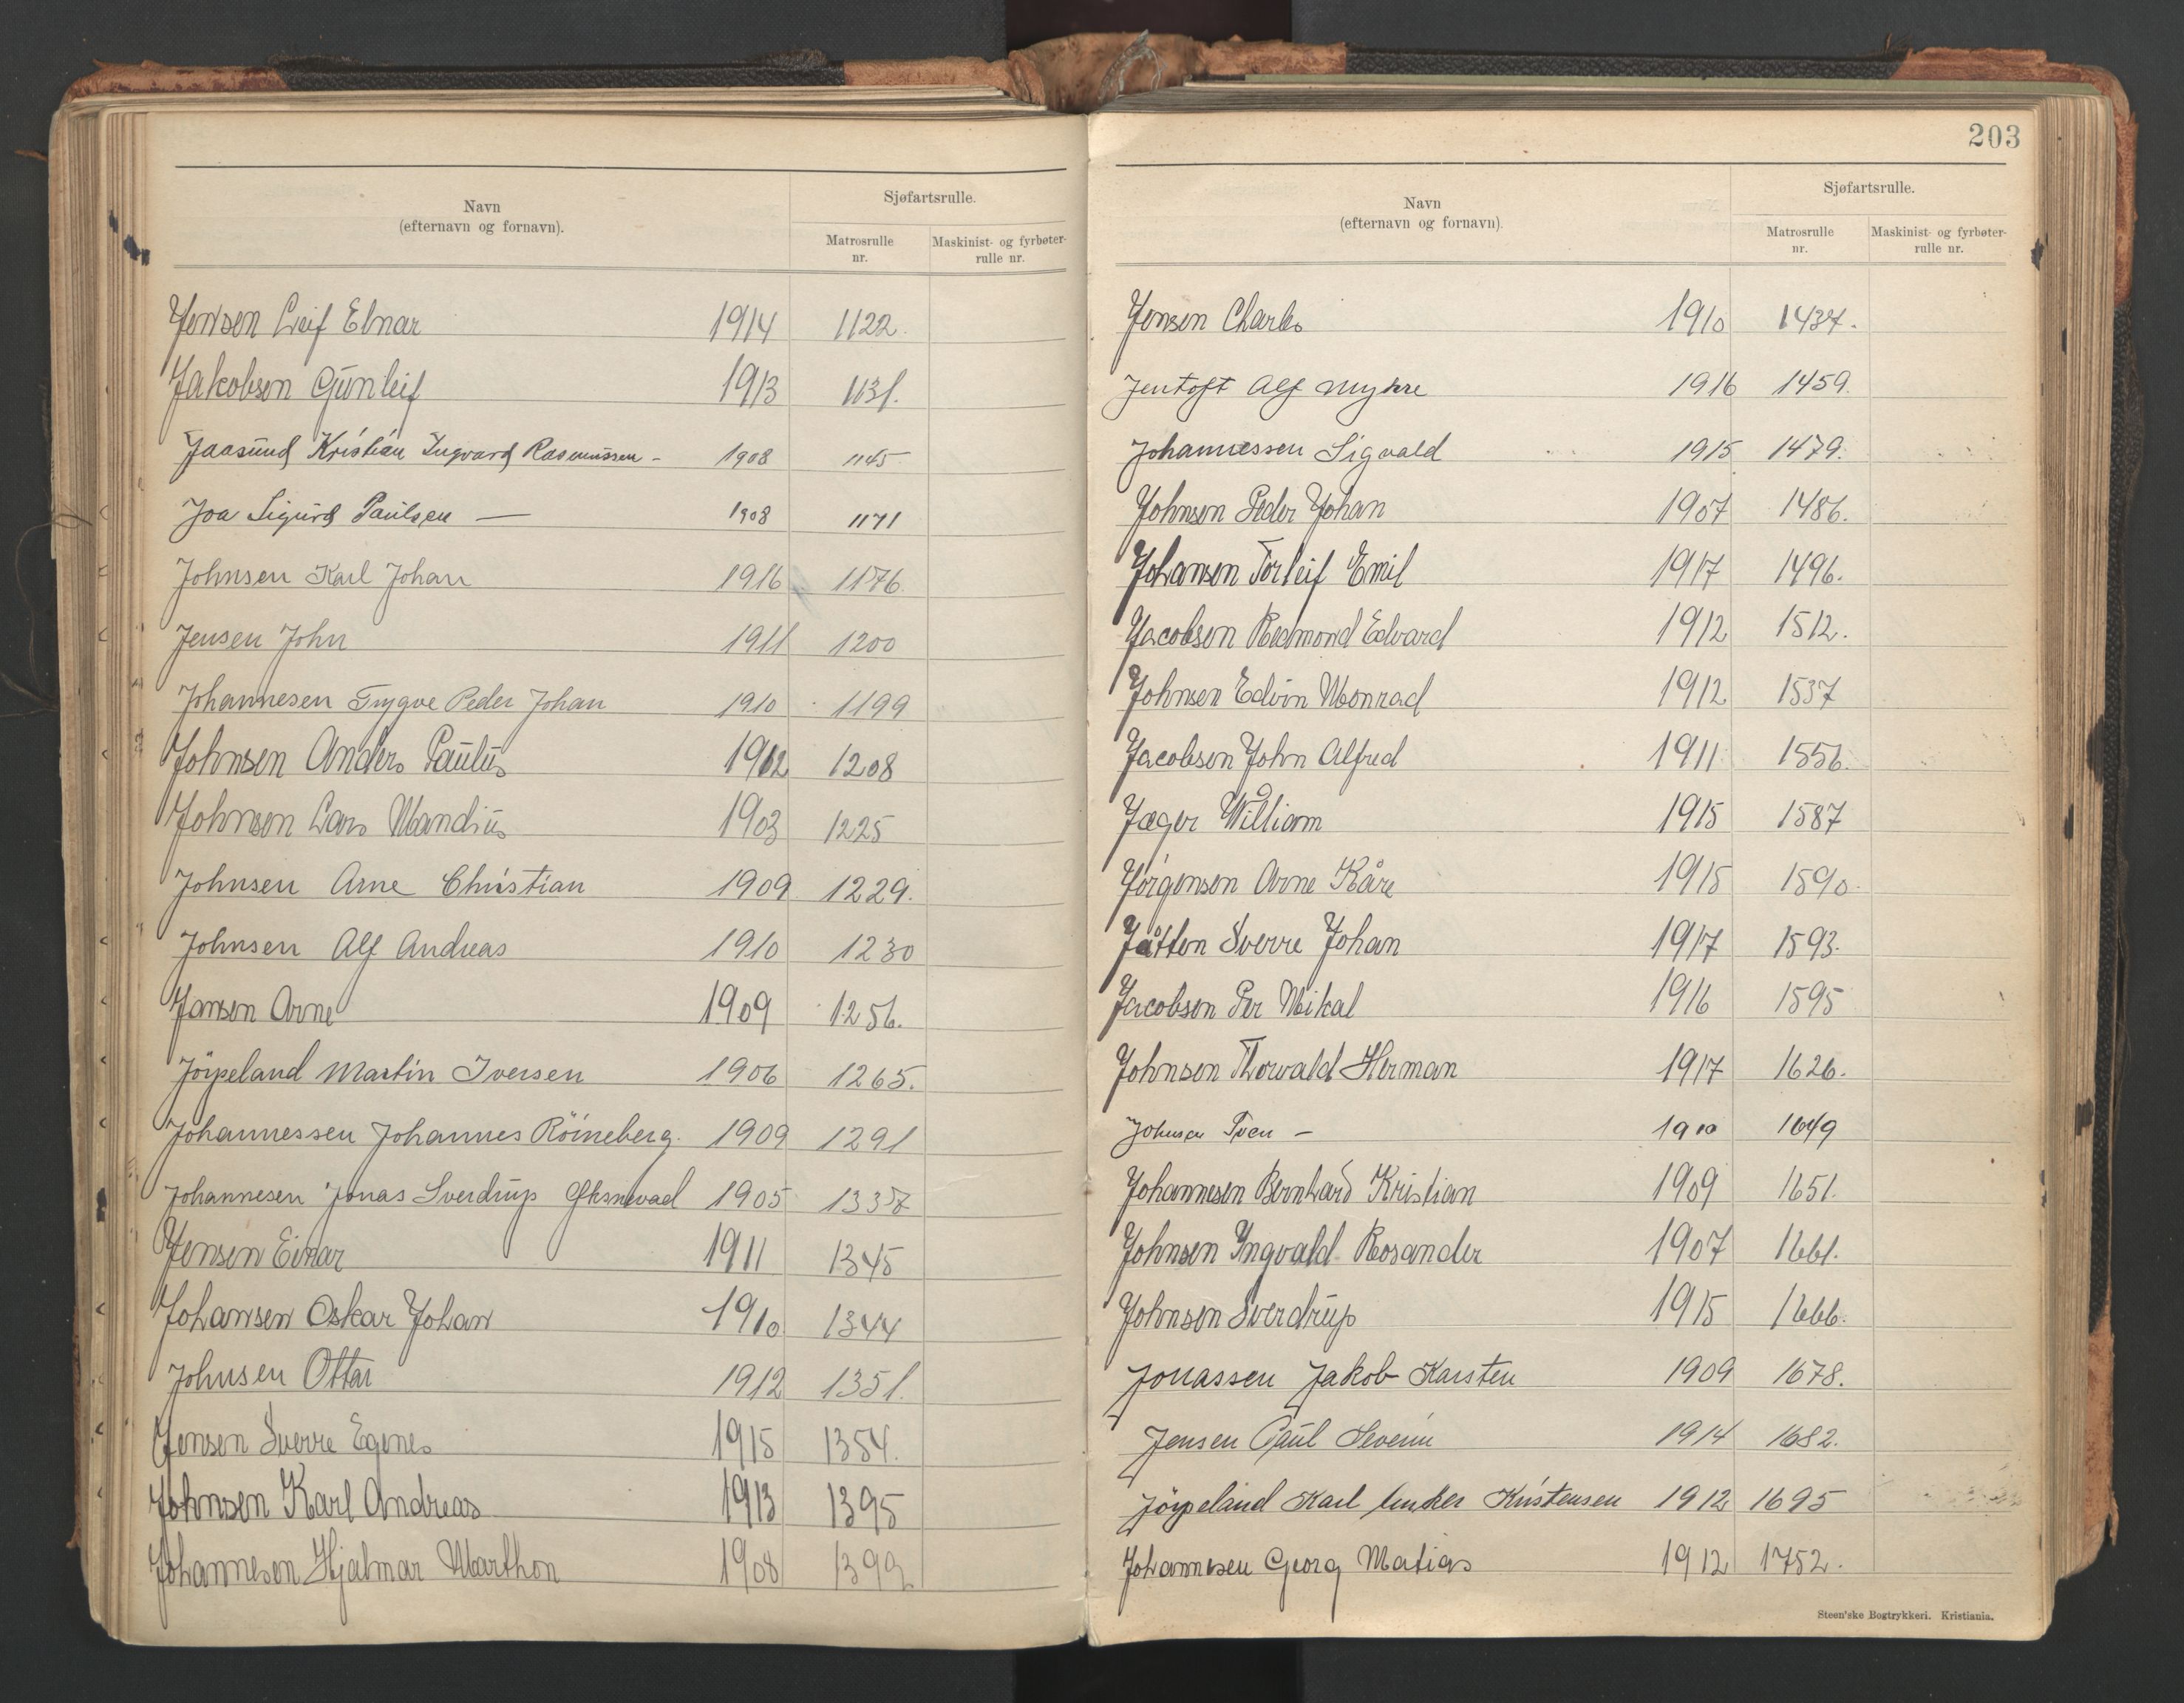 Navn
(efternavn og fornavn).
Sjøfartsrulle.
Matrosrulle
nr.
Maskinist- og fyrbøter-
rulle nr.
Jensen Leif Elnar 1914 1122.
Jakobsen Gunleif 1913 1131.
Jaasund Kristian Ingvard Rasmussen - 1908 1145
Joa Sigurd Paulsen — 1908 1171
Johnsen Karl Johan 1916 1176.
Jensen John 1911 1200
Johannesen Trygve Peder Johan 1910 1199
Johnsen Anders Paulus 1912 1208
Johnsen Lars Mandius 1903 1225
Johnsen Arne Christian 1909 1229.
Johnsen Alf Andreas 1910 1230
Jansen Arne 1909 1256.
Jörpeland Martin Iversen 1906 1265.
Johannessen Johannes Röineberg. 1909 1291
Johannesen Jonas Sverdrup 1905 1337
Jensen Einar 1911 1345
Johansen Oskar Johan 1910 1344
Johnsen Ottar 1912 1351.
Jensen Sverre Egenes 1915 1354.
Johnsen Karl Andreas 1913 1395
Johannesen Hjalmar Marthon 1908 1399
203
Navn
(efternavn og fornavn).
Sjøfartsrulle.
Matrosrulle
nr.
Maskinist- og fyrbøter-
rulle nr.
Jensen Charles 1910 1434.
Jentoft Alf Myhre 1916 1459.
Johannessen Sigvald 1915 1479.
Johnsen Peder Johan 1907 1486.
Johansen Torleif Emil 1917 1496.
Jacobsen Redmond Edvard 1912 1512.
Johnsen Edvin Monrad 1912 1537
Jacobsen John Alfred 1911 1556.
Jæger William 1915 1587
Jörgensen Arne Kåre 1915 1590.
Jåtten Sverre Johan 1917 1593.
Jacobsen Per Mikal 1916 1595
Johnsen Thorvald Herman 1917 1626.
Johnsen - 1910 1649
Johannesen Bernhard Kristian 1909 1651.
Johnsen Yngvald Rosander 1907 1661.
Johnsen Sverdrup 1915 1666.
Jonassen Jakob Karsten 1909 1678.
Jensen Paul Severin 1914 1682.
Jörpeland Karl Kristensen 1912 1695
Johannesen Georg Matias 1912 1752.
Steen'ske Bogtrykkeri. Kristiania.